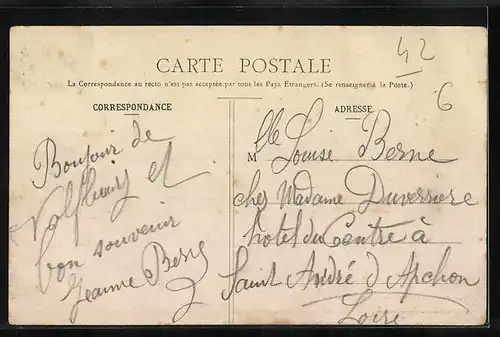 42
6
CARTE POSTALE
La Correspondance au recto n'est pas acceptée par tous les Pays Etrangers. (Se renseigner à la Poste.)
CORRESPONDANCE
ADRESSE
Bonjour de
Valfleury et
bon souvenir
Jeanne Berne
Mlle Louise Berne
chez Madame Duverriere
hotel du Centre à
Saint André d Apchon
Loire